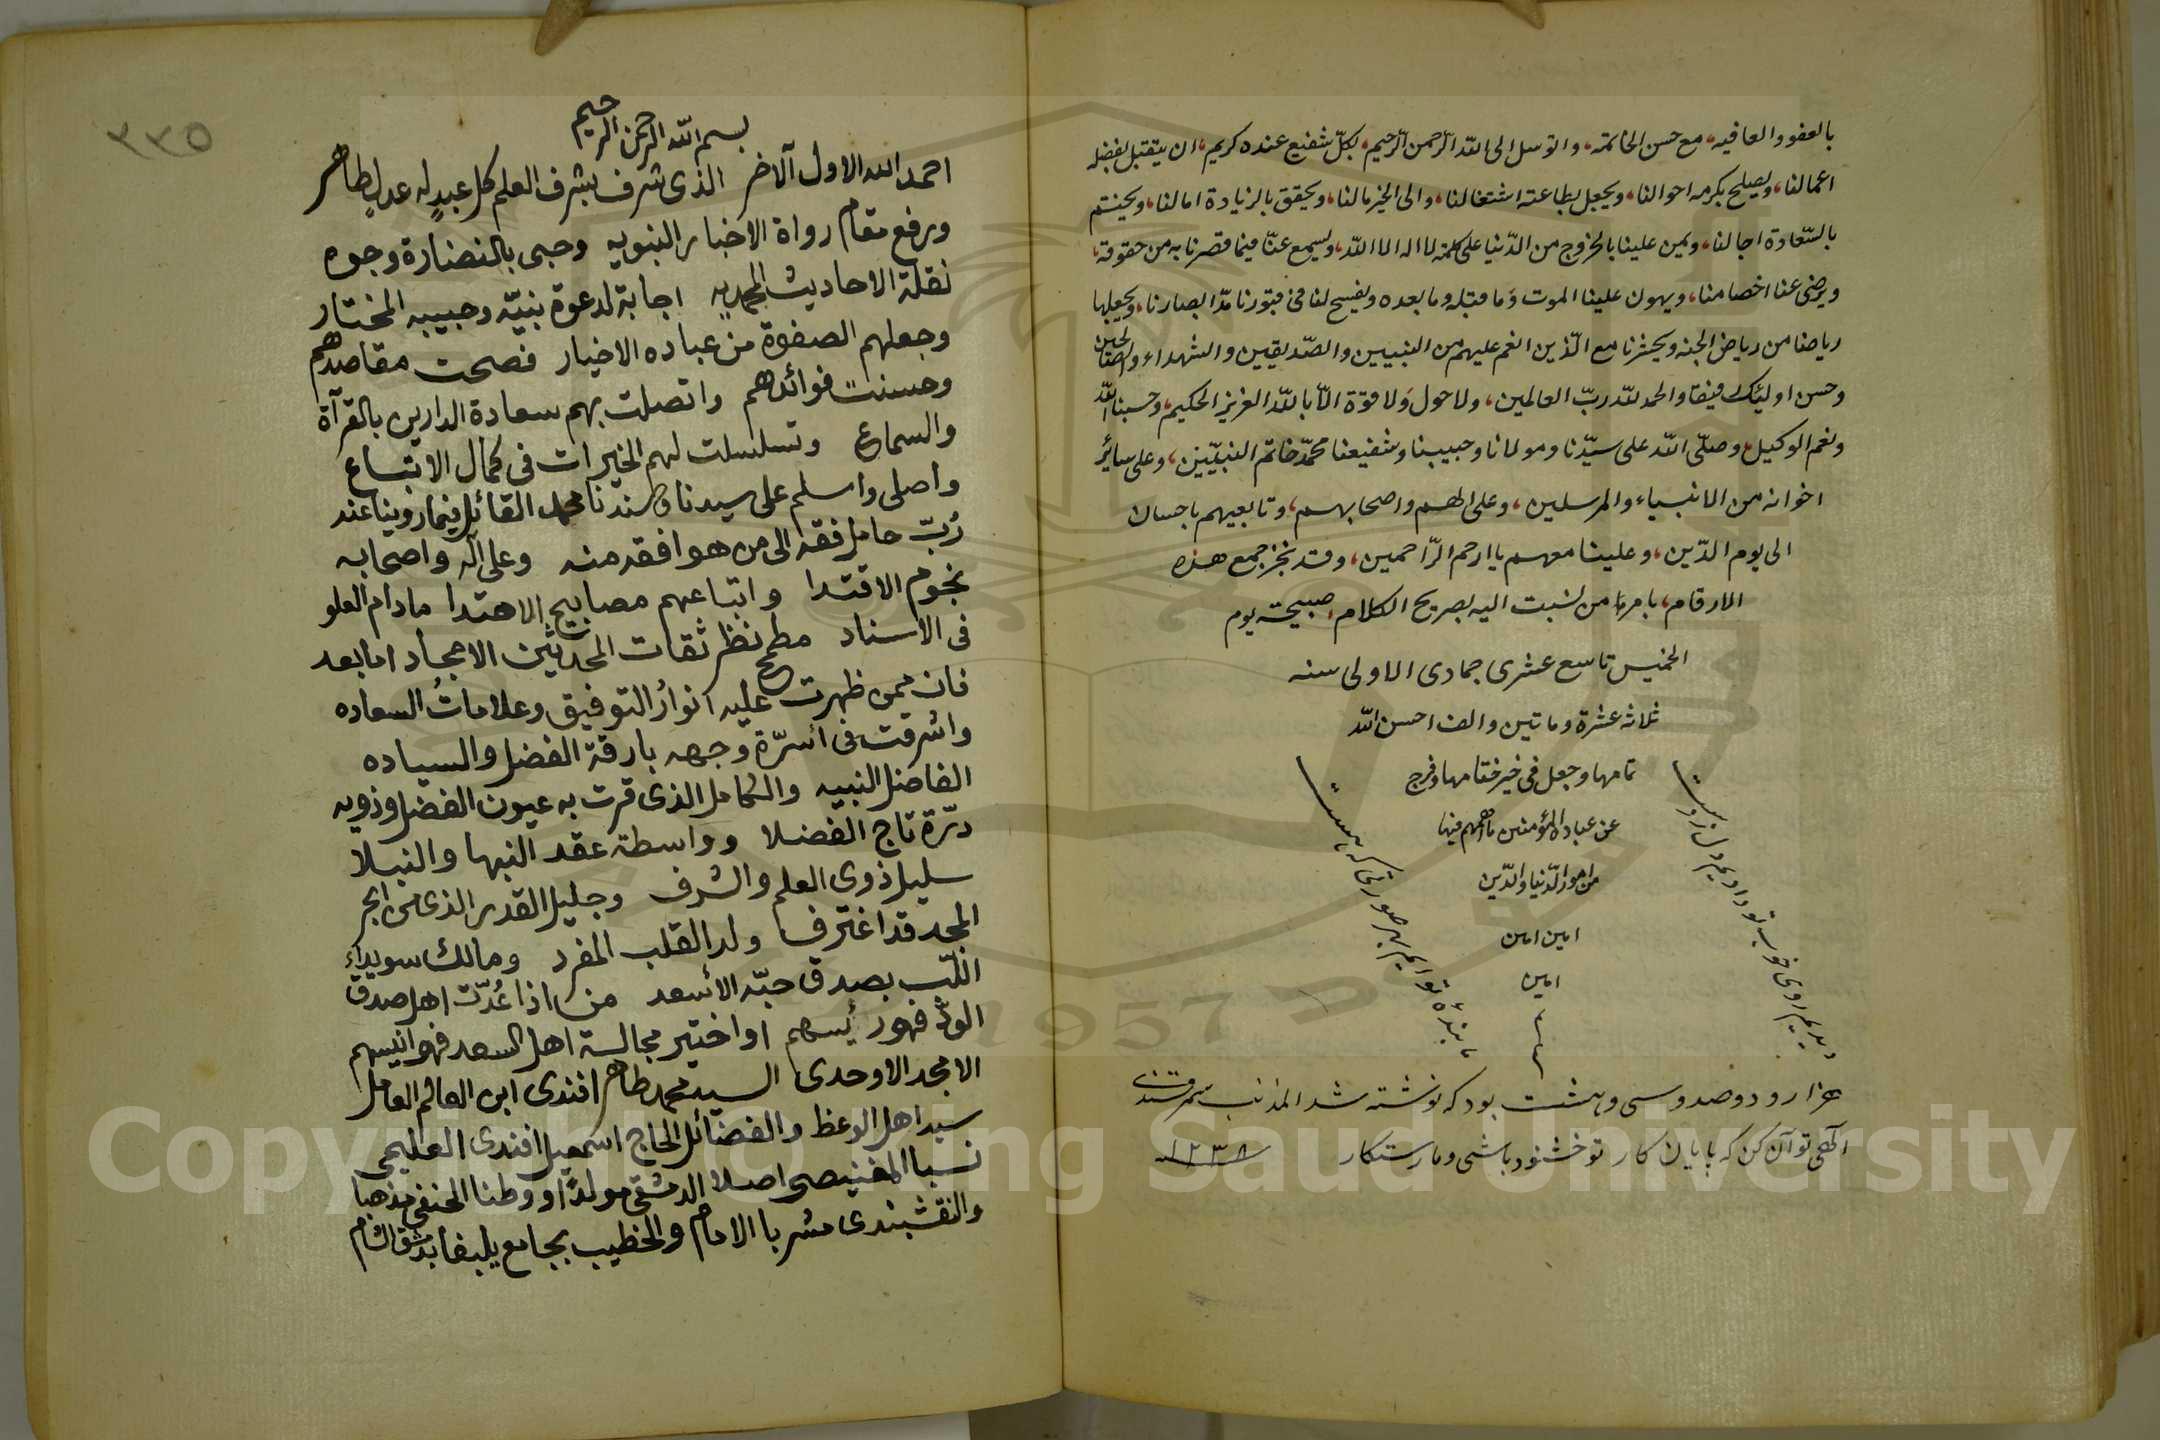 بالعفو والعافيه، مع حسن الخاتمه، والتوسل الى الله الرّحمن الرّحيم، بكلّ شفيع عنده كريم، ان يتقبل بفضله
اعمالنا، ويصلح بكرمه احوالنا، ويجعل بطاعته اشتغالنا، والى الخير مالنا، ويحقق بالزيادة امالنا، ويختم
بالسّعادة اجالنا، ويمن علينا بالخروج من الدّنيا على كلمة لا اله الا اللّه، ويسمع عنّا فيما قصرنا به من حقوقه،
ويرضى عنا اخصامنا، ويهون علينا الموت وَما قبله وما بعده ويفسح لنا فى قبورنا مدّ ابصارنا، ويجعلها
رياضا من رياض الجنه ويحشرنا مع الّذين انعم عليهم من النبيين والصّديقين والشهداء والصّالحين
وحسن اولئك رفيقا والحمد للّه ربّ العالمين، ولا حول وَلا قوّة الّا باللّه العزيز الحكيم، وحسبنا اللّه
ونعم الوكيل، وصلّى اللّه على سيّدنا ومولانا وحبيبنا وشفيعنا محمّد خاتم النبيّين، وعلى سائر
اخوانه من الانبياء والمرسلين، وعلى الهم واصحابهم، وتابعيهم باحسان
الى يوم الدّين، وعلينا معهم يا ارحم الرّاحمين، وقد نجز جمع هذه
الارقام، بامر من نسبت اليه بصريح الكلام، صبيحة يوم
الخميس تاسع عشرى جمادى الاولى سنه
ثلاثه عشرة وماتين والف احسن اللّه
تمامها وجعل فى خير ختامها وفرج
عن عباده المؤمنين ما اهمهم فيها
من امور الدّنيا والدّين
امين امين
امين
ديديم روى خوب تو داديم دل ز دست
ما بندهٔ توايم بهر صورتى كه هست
هزار و دوصد وسى وهشت بود كه نوشته شد المذنب سمرقندى
الهى تو آن كن كه پايان كار تو خشنود باشى وما رستكار ١٢٣٨
٣٣٥
بسم الله الرحمن الرحيم
احمد الله الاول الآخر الذى شرف بشرف العلم كل عبد له عدل طاهر
ورفع مقام رواة الاخبار النبويه وحبى بالنضارة وجوه
نقلة الاحاديث المحمديه اجابة لدعوة نبيّه وحبيبه المختار
وجعلهم الصفوة من عباده الاخيار فصحت مقاصدهم
وحسنت فوائدهم واتصلت بهم سعادة الدارين بالقرآة
والسماع وتسلسلت لهم الخيرات فى كمال الاتباع
واصلى واسلم على سيدنا وسندنا محمد القائل فيما روينا عند
رُبّ حامل فقه الى من هو افقه منه وعلى آله واصحابه
نجوم الاقتدا واتباعهم مصابيح الاهتدا مادام العلو
فى الاسناد مطمح نظر ثقات المحدّثين الامجاد اما بعد
فان ممن ظهرت عليه انوارُ التوفيق وعلاماتُ السعاده
واشرقت فى اسرّة وجهه بارقة الفضل والسياده
الفاضل النبيه والكامل الذى قرت به عيون الفضل وذويه
درّة تاج الفضلا وواسطة عقد النبها والنبلا
سليل ذوى العلم والشرف وجليل القدر الذى من ابحر
المجد قد اغترف ولد القلب المفرد ومالك سويداء
اللّب بصدق حبّه الأسعد من اذا عُدّت اهل صدق
الودّ فهو رئيسهم او اختير مجالسة اهل السعد فهو انيسهم
الامجد الاوحدى السيد محمد طاهر افندى ابن العالم العامل
سيد اهل الوعظ والفضائل الحاج اسمعيل افندى العليمى
نسبا المغنيصى اصلا الدمشقى مولدًا ووطنا الحنفى مذهبا
والنقشبندى مشربا الامام والخطيب بجامع يلبغا بدمشق الشام
Copyright © King Saud University
1957